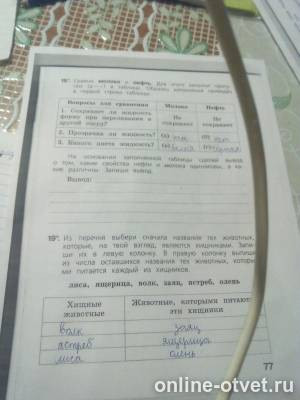 18*. Сравни молоко и нефть. Для этого заполни пропус-
ки (а—г) в таблице. Образец заполнения приведён
в первой строке таблицы.
Вопросы для сравнения Молоко Нефть
1. Сохраняет ли жидкость форму при переливании в другой сосуд? Не сохраняет Не сохраняет
2. Прозрачна ли жидкость? (а) нет (б) нет
3. Какого цвета жидкость? (в) белая (г) чёрная
На основании заполненной таблицы сделай вывод
о том, какие свойства нефти и молока одинаковы, а ка-
кие различны. Запиши вывод.
Вывод:
19*. Из перечня выбери сначала названия тех животных,
которые, на твой взгляд, являются хищниками. Запи-
ши их в левую колонку. В правую колонку выпиши
из числа оставшихся названия тех животных, которы-
ми питается каждый из хищников.
лиса, ящерица, волк, заяц, ястреб, олень
Хищные животные Животные, которыми питаются эти хищники
волк заяц
ястреб ящерица
лиса олень
77
online-otvet.ru